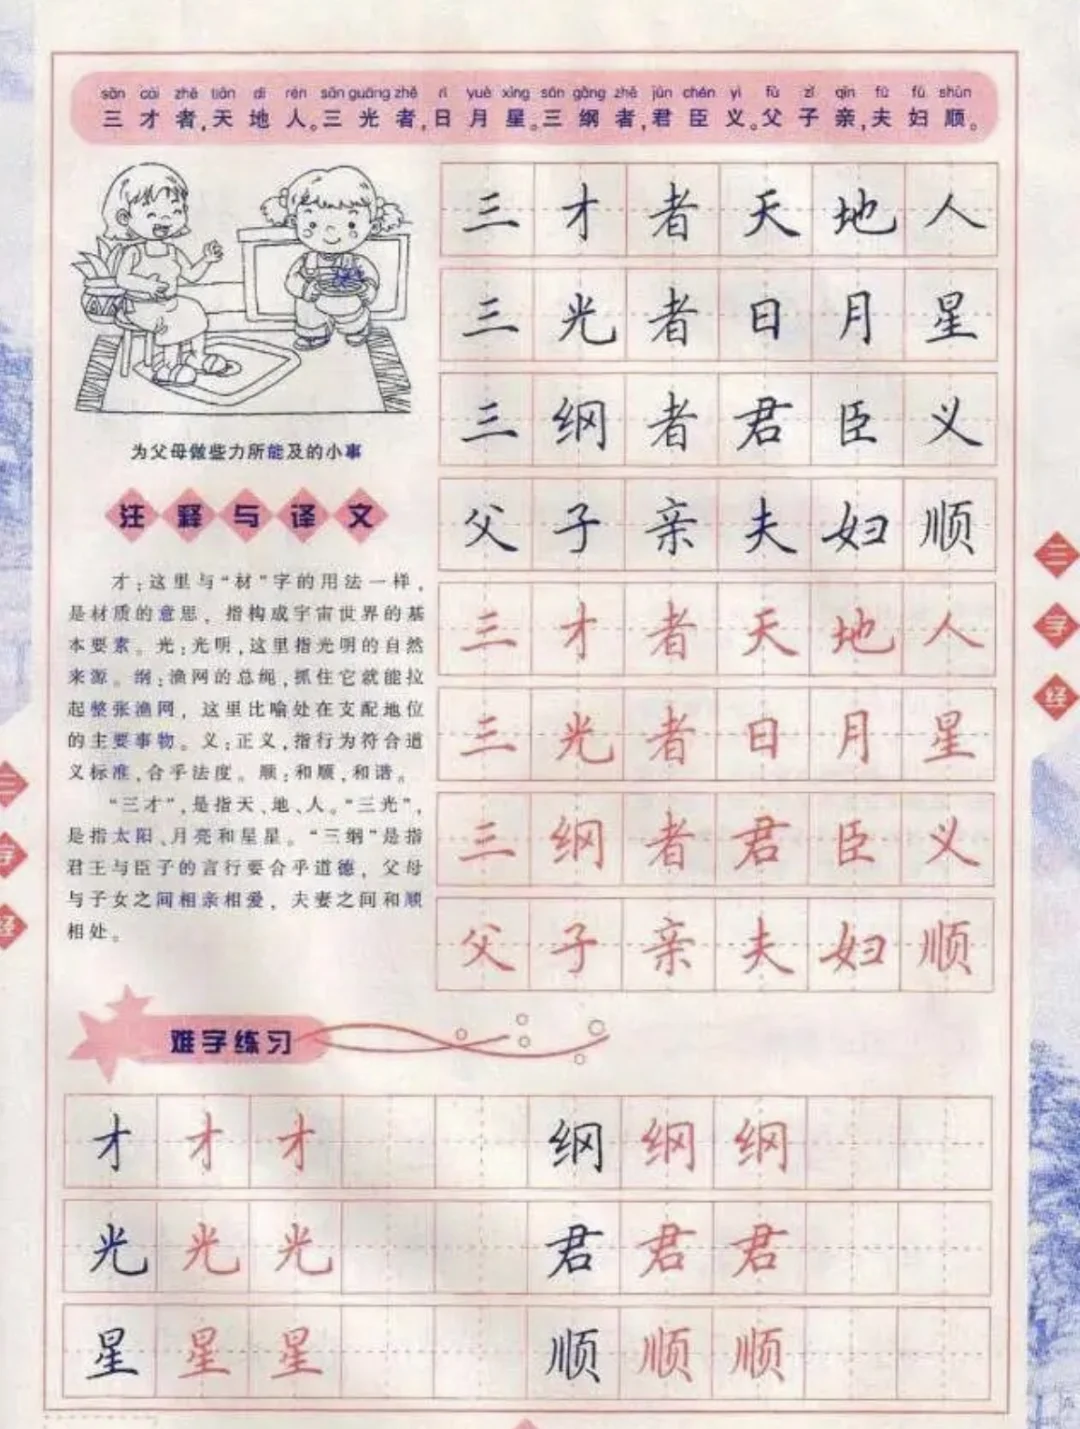 sān cái zhě tiān dì rén sān guāng zhě rì yuè xīng sān gāng zhě jūn chén yì fù zǐ qīn fū fù shùn
三才者,天地人。三光者,日月星。三纲者,君臣义。父子亲,夫妇顺。
为父母做些力所能及的小事
注释与译文
才:这里与“材”字的用法一样,
是材质的意思, 指构成宇宙世界的基
本要素。光:光明,这里指光明的自然
来源。纲:渔网的总绳,抓住它就能拉
起整张渔网, 这里比喻处在支配地位
的主要事物。义:正义,指行为符合道
义标准,合乎法度。顺:和顺,和谐。
“三才”,是指天、地、人。“三光”,
是指太阳、月亮和星星。“三纲”是指
君王与臣子的言行要合乎道德, 父母
与子女之间相亲相爱, 夫妻之间和顺
相处。
三才者天地人
三光者日月星
三纲者君臣义
父子亲夫妇顺
三才者天地人
三光者日月星
三纲者君臣义
父子亲夫妇顺
三字经
三字经
难字练习
才才才 纲纲纲
光光光 君君君
星星星 顺顺顺